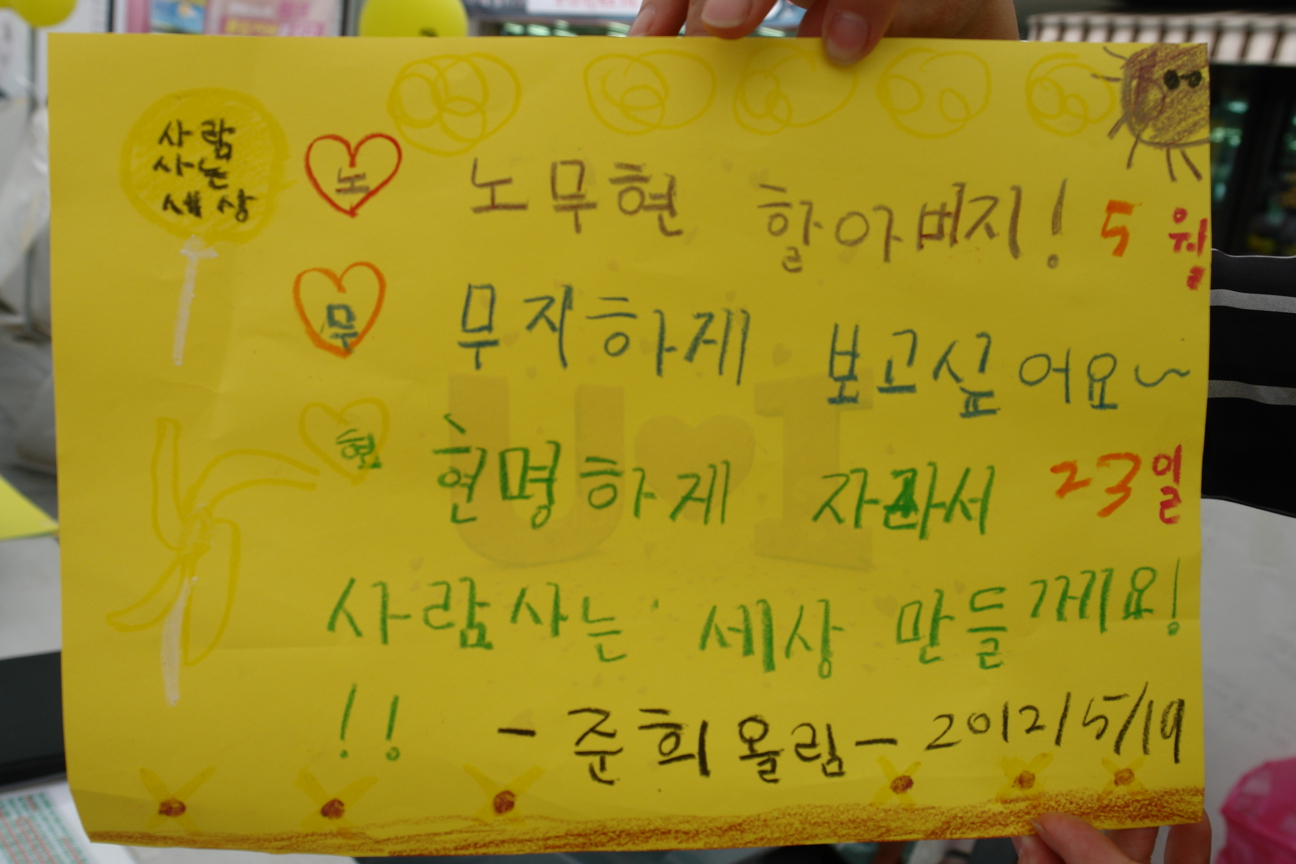 사람
사는
세상
노 노무현 할아버지! 5월
무 무자하게 보고싶어요~
현 현명하게 자라서 23일
사람사는 세상 만들께요!
!!
- 준희올림 - 2012/5/19
U I